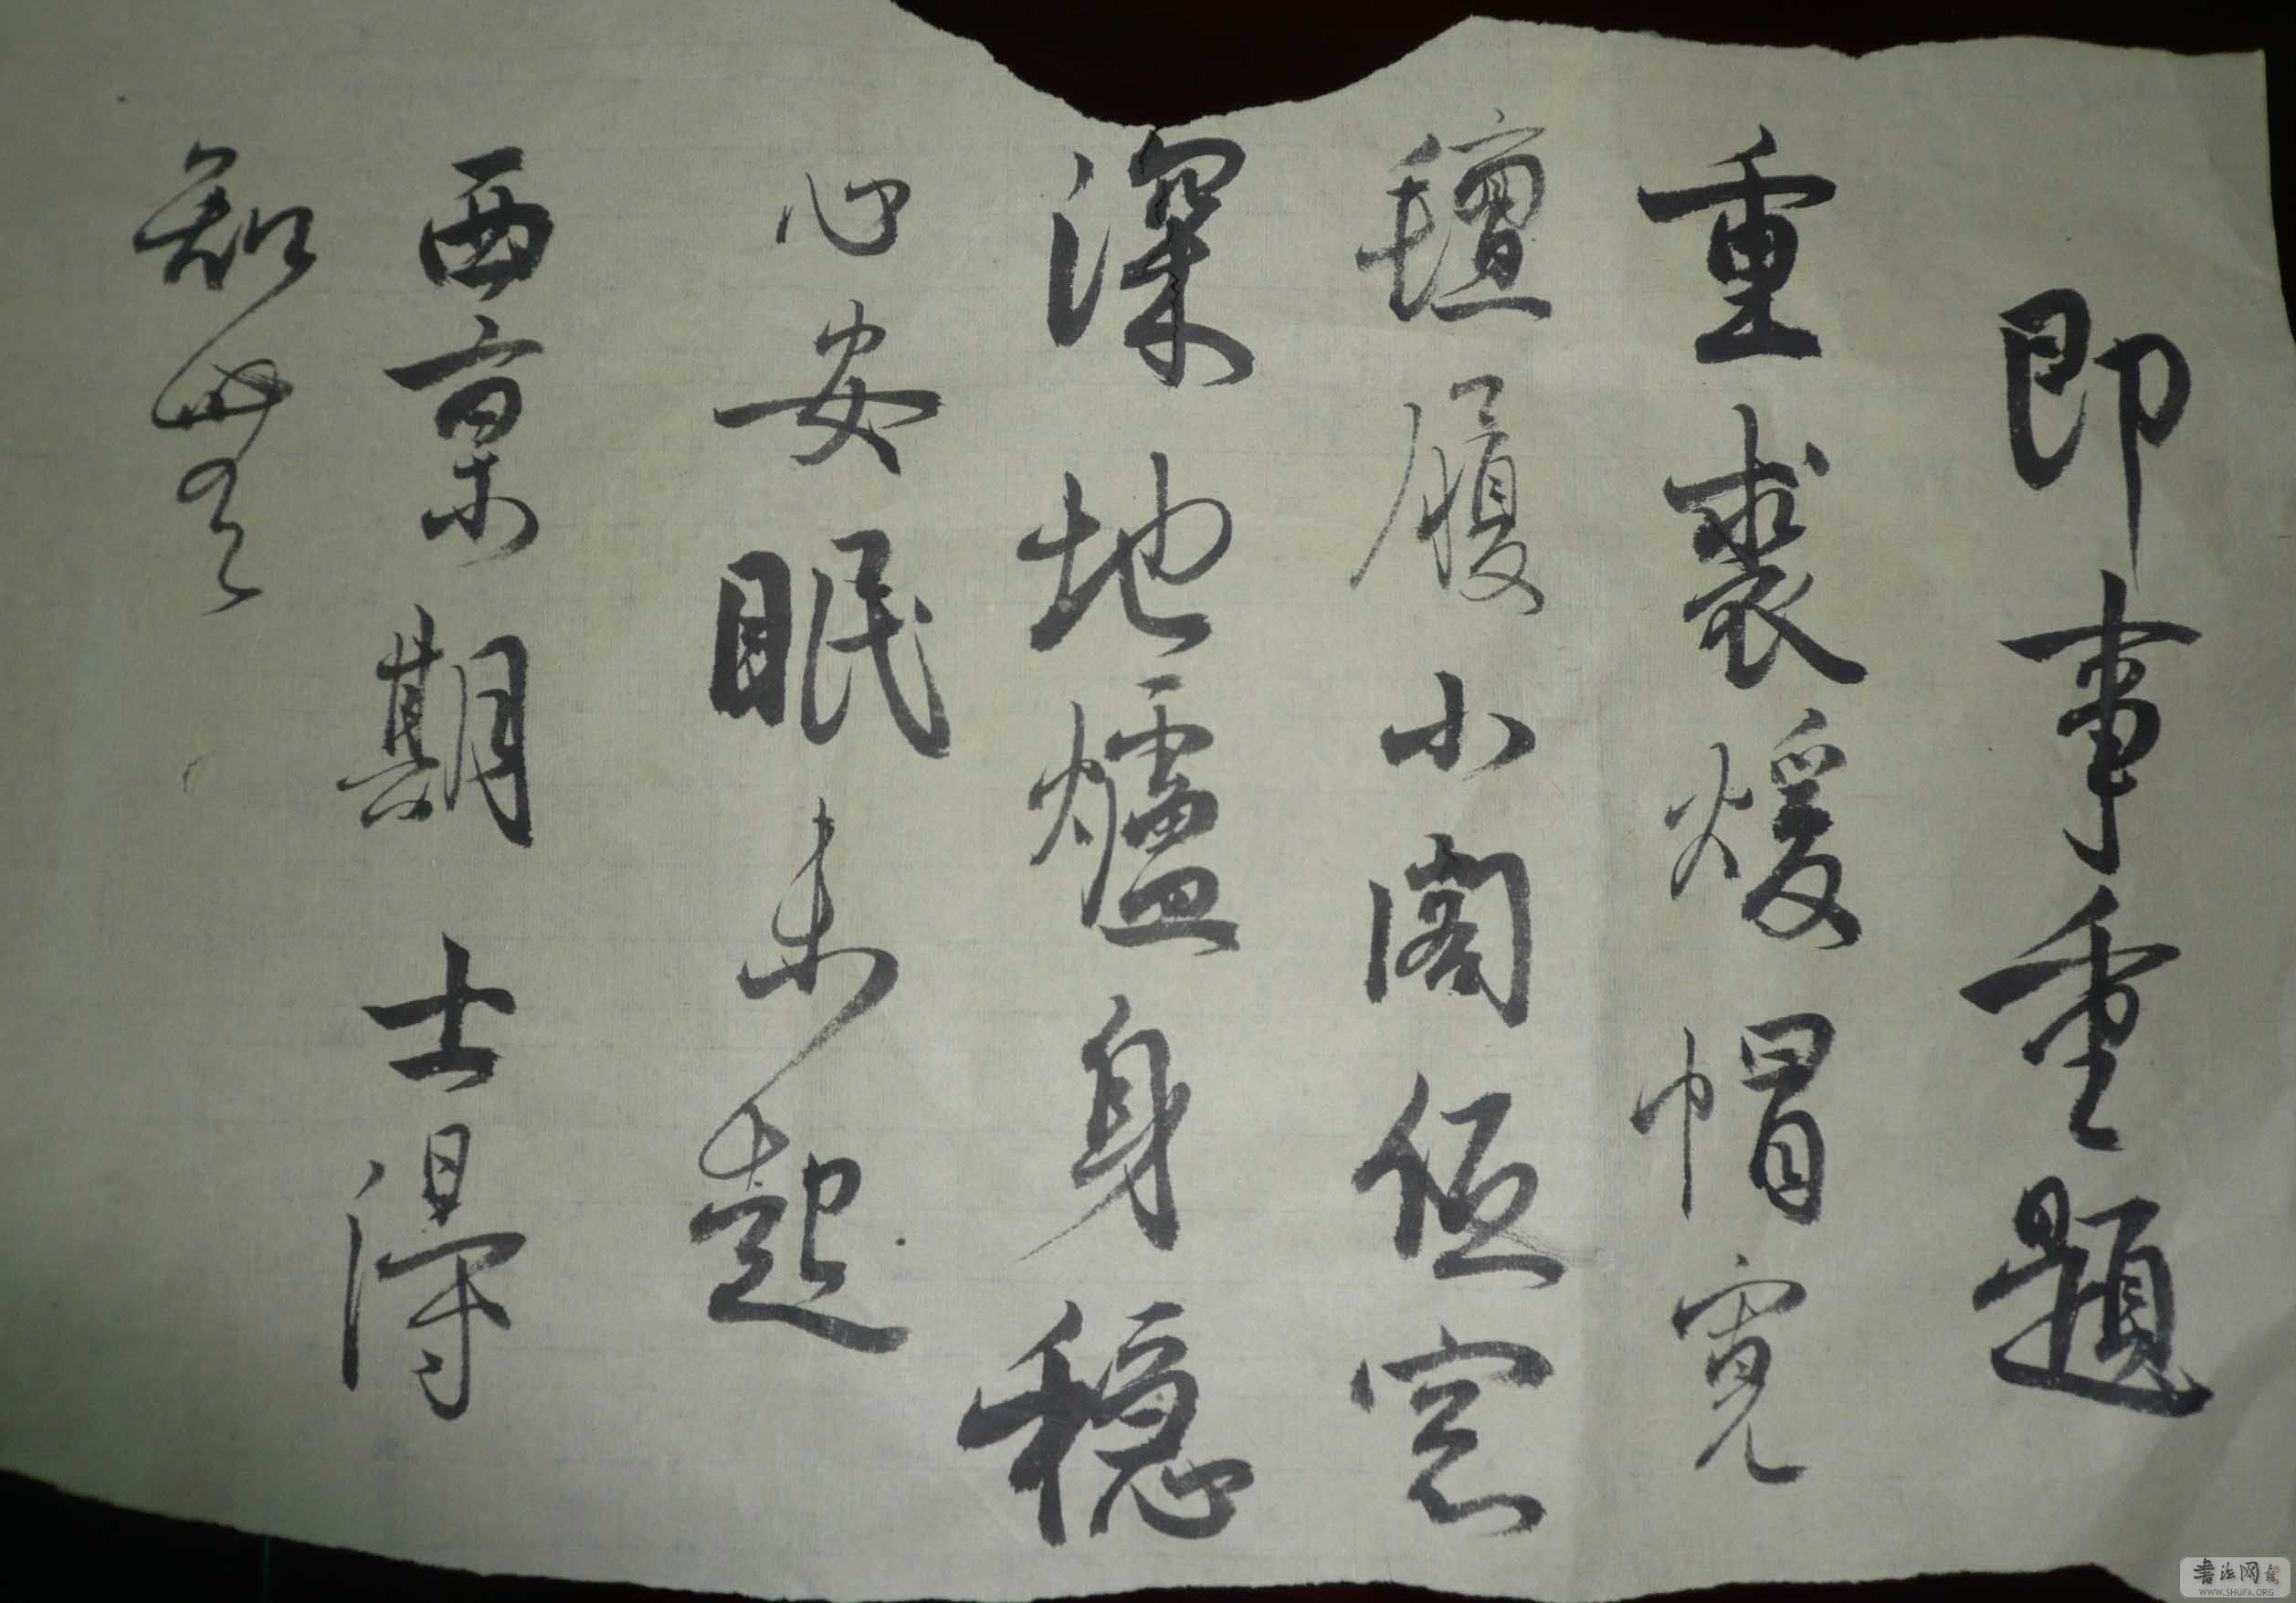 即事重題
重裘煖帽寬
氈履小閣低窓
深地爐身穩
心安眠未起
西京期士得
知無
書法网
WWW.SHUFA.ORG